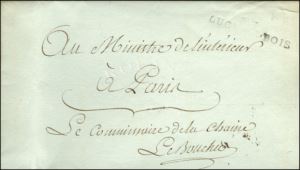 Au Ministre de l'intérieur
à Paris
Le Commissaire de la chaine
Le Bouchu
BOIS